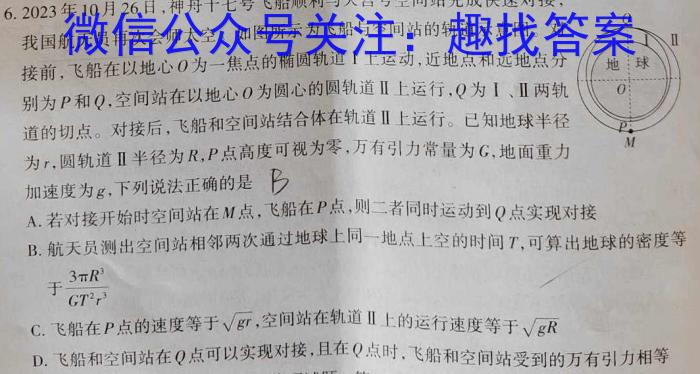 6. 2023年10月26日,神舟十七号飞船顺利与天宫号空间站完成快速对接,
我国航
微信公众号关注：趣找答案
接前,飞船在以地心O为一焦点的椭圆轨道Ⅰ上运动,近地点和远地点分
别为P和Q,空间站在以地心O为圆心的圆轨道Ⅱ上运行,Q为Ⅰ、Ⅱ两轨
道的切点。对接后,飞船和空间站结合体在轨道Ⅱ上运行。已知地球半径
为r,圆轨道Ⅱ半径为R,P点高度可视为零,万有引力常量为G,地面重力
加速度为g,下列说法正确的是 B
Ⅰ Ⅱ
地 球
O
P
M
A. 若对接开始时空间站在M点,飞船在P点,则二者同时运动到Q点实现对接
B. 航天员测出空间站相邻两次通过地球上同一地点上空的时间T,可算出地球的密度等
于 3πR³/GT²r³
C. 飞船在P点的速度等于√gr,空间站在轨道Ⅱ上的运行速度等于√gR
D. 飞船和空间站在Q点可以实现对接,且在Q点时,飞船和空间站受到的万有引力相等